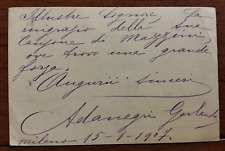 Illustre Signore, La
ringrazio della sua
Canzone di Mazzini
ove trovo una grande
forza.
Auguri sinceri
Ada Negri Garlanda
Milano 15-1-1907.